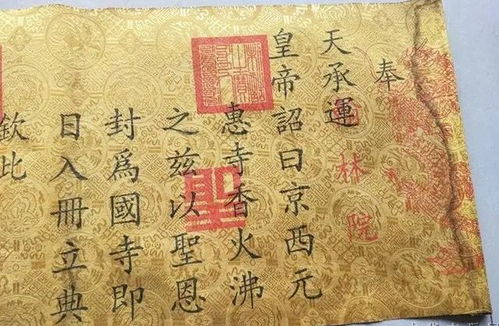 奉
林院
天承運
皇帝詔曰京西元
惠寺香火沸
聖
之茲以聖恩
封爲國寺即
日入冊立典
欽此